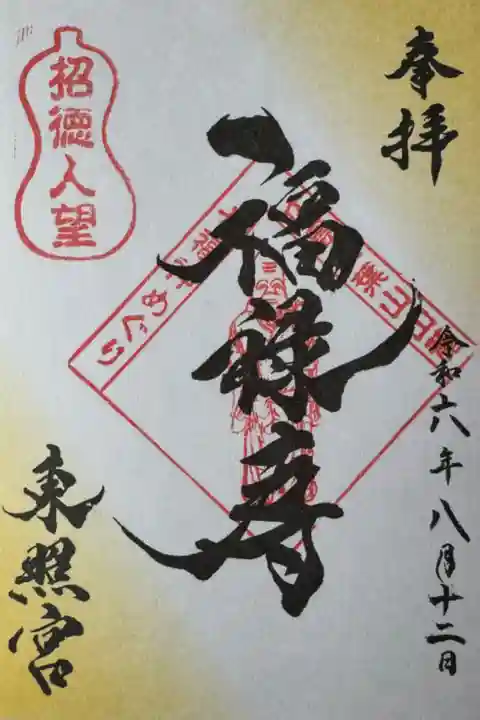 奉拝
令和六年八月十二日
福禄寿
招徳人望
めぐり
東照宮